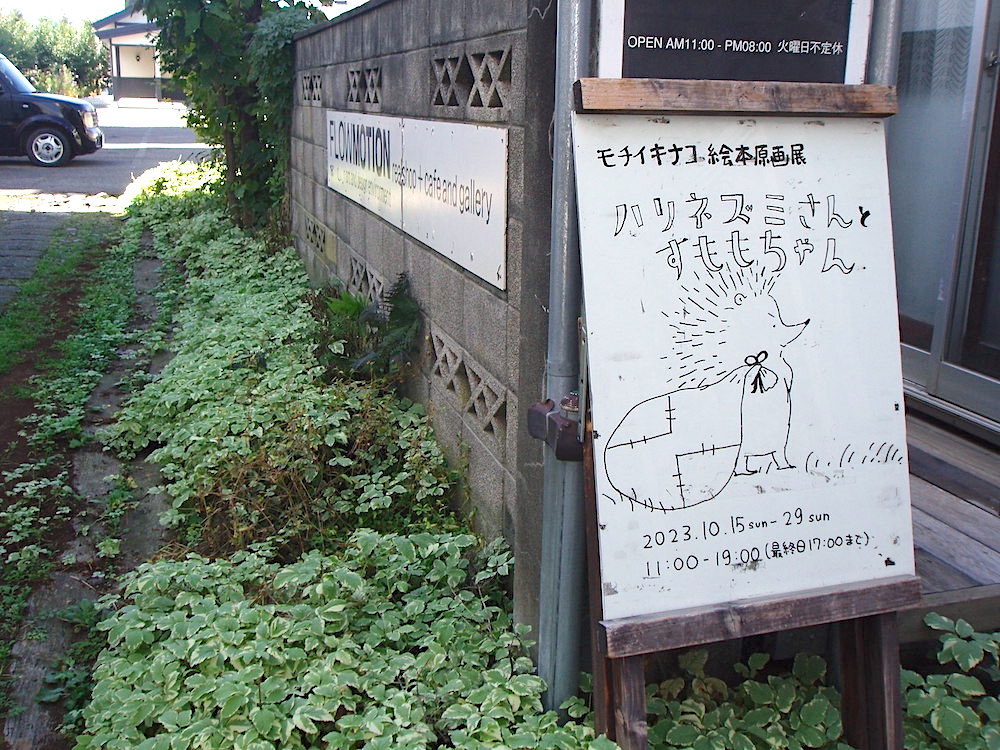 OPEN AM11:00 - PM08:00 火曜日不定休
モチイキナコ 絵本原画展
ハリネズミさんと
すももちゃん
2023.10.15 sun - 29 sun
11:00 - 19:00 (最終日17:00まで)
FLOWMOTION
shop + cafe and gallery